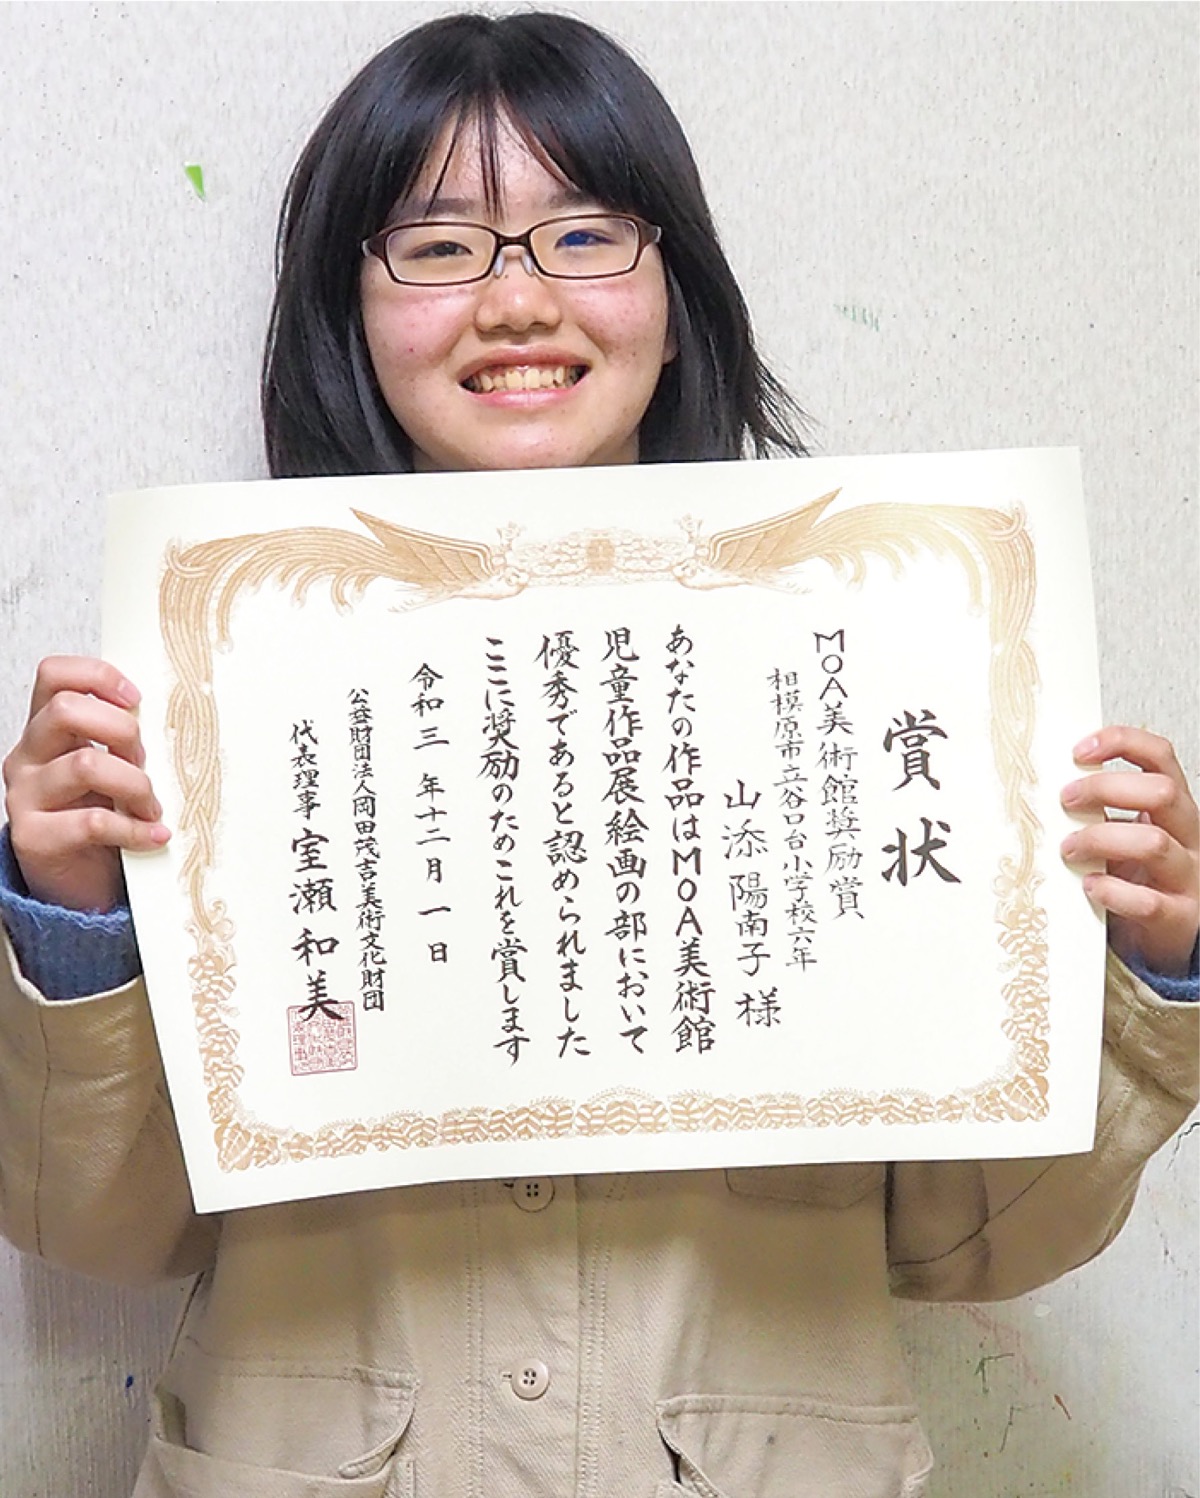 賞状
MOA美術館奨励賞
相模原市立谷口台小学校六年
山添陽南子様
あなたの作品はMOA美術館
児童作品展絵画の部において
優秀であると認められました
ここに奨励のためこれを賞します
令和三年十二月一日
公益財団法人岡田茂吉美術文化財団
代表理事 室瀬和美